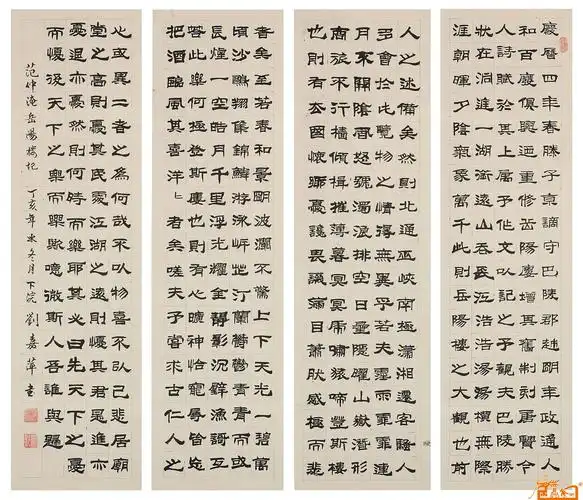 慶曆四年春滕子京謫守巴陵郡越明年政通人
和百廢俱興乃重修岳陽樓增其舊制刻唐賢今
人詩賦於其上屬予作文以記之予觀夫巴陵勝
狀在洞庭一湖銜遠山吞長江浩浩湯湯橫無際
涯朝暉夕陰氣象萬千此則岳陽樓之大觀也前
人之述備矣然則北通巫峽南極瀟湘遷客騷人
多會於此覽物之情得無異乎若夫霪雨霏霏連
月不開陰風怒號濁浪排空日星隱曜山嶽潛形
商旅不行檣傾楫摧薄暮冥冥虎嘯猿啼登斯樓
也則有去國懷鄉憂讒畏譏滿目蕭然感極而悲
者矣至若春和景明波瀾不驚上下天光一碧萬
頃沙鷗翔集錦鱗游泳岸芷汀蘭鬱鬱青青而或
長煙一空皓月千里浮光耀金靜影沉璧漁謌互
答此樂何極登斯樓也則有心曠神怡寵辱皆忘
把酒臨風其喜洋〻者矣嗟夫予嘗求古仁人之
心或異二者之為何哉不以物喜不以己悲居廟
堂之高則憂其民處江湖之遠則憂其君是進亦
憂退亦憂然則何時而樂耶其必曰先天下之憂
而憂後天下之樂而樂歟噫微斯人吾誰與歸
范仲淹岳陽樓記 丁亥年冰冬月下浣 劉嘉萍書